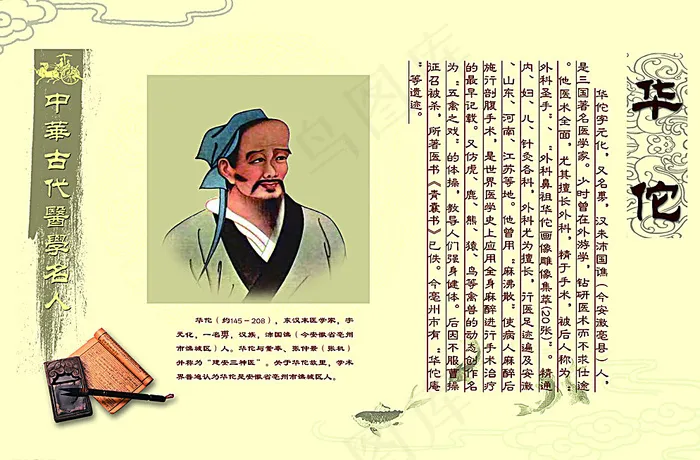 中華古代醫學名人
华佗
华佗字元化，又名旉，汉末沛国谯（今安徽亳县）人，
是三国著名医学家。少时曾在外游学，钻研医术而不求仕途
。他医术全面，尤其擅长外科，精于手术，被后人称为：“
外科圣手”、“外科鼻祖华佗画像雕像集萃(20张)”。精通
内、妇、儿、针灸各科，外科尤为擅长，行医足迹遍及安徽
、山东、河南、江苏等地。他曾用“麻沸散”使病人麻醉后
施行剖腹手术，是世界医学史上应用全身麻醉进行手术治疗
的最早记载。又仿虎、鹿、熊、猿、鸟等禽兽的动态创作名
为“五禽之戏”的体操，教导人们强身健体。后因不服曹操
征召被杀，所著医书《青囊书》已佚。今亳州市有“华佗庵
”等遗迹。
华佗（约145－208），东汉末医学家，字
元化，一名旉，汉族，沛国谯（今安徽省亳州
市谯城区）人。华佗与董奉、张仲景（张机）
并称为“建安三神医”。关于华佗故里，学术
界普遍认为华佗是安徽省亳州市谯城区人。